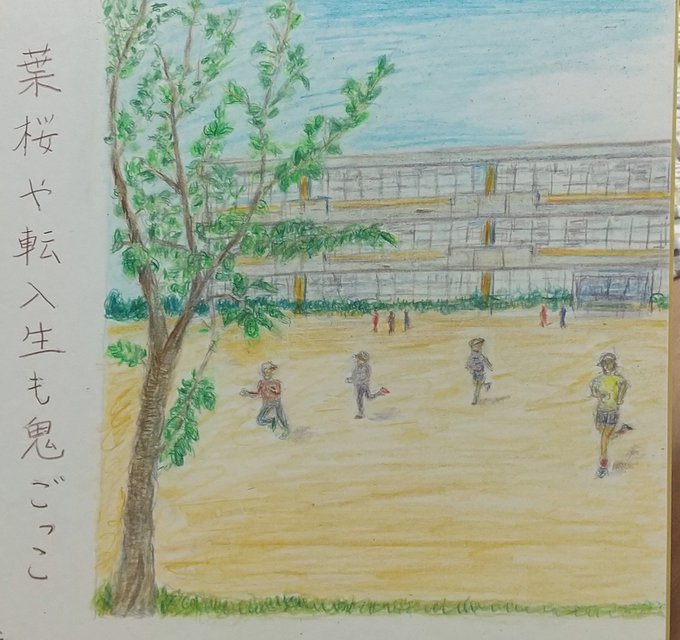 葉桜や転入生も鬼ごっこ